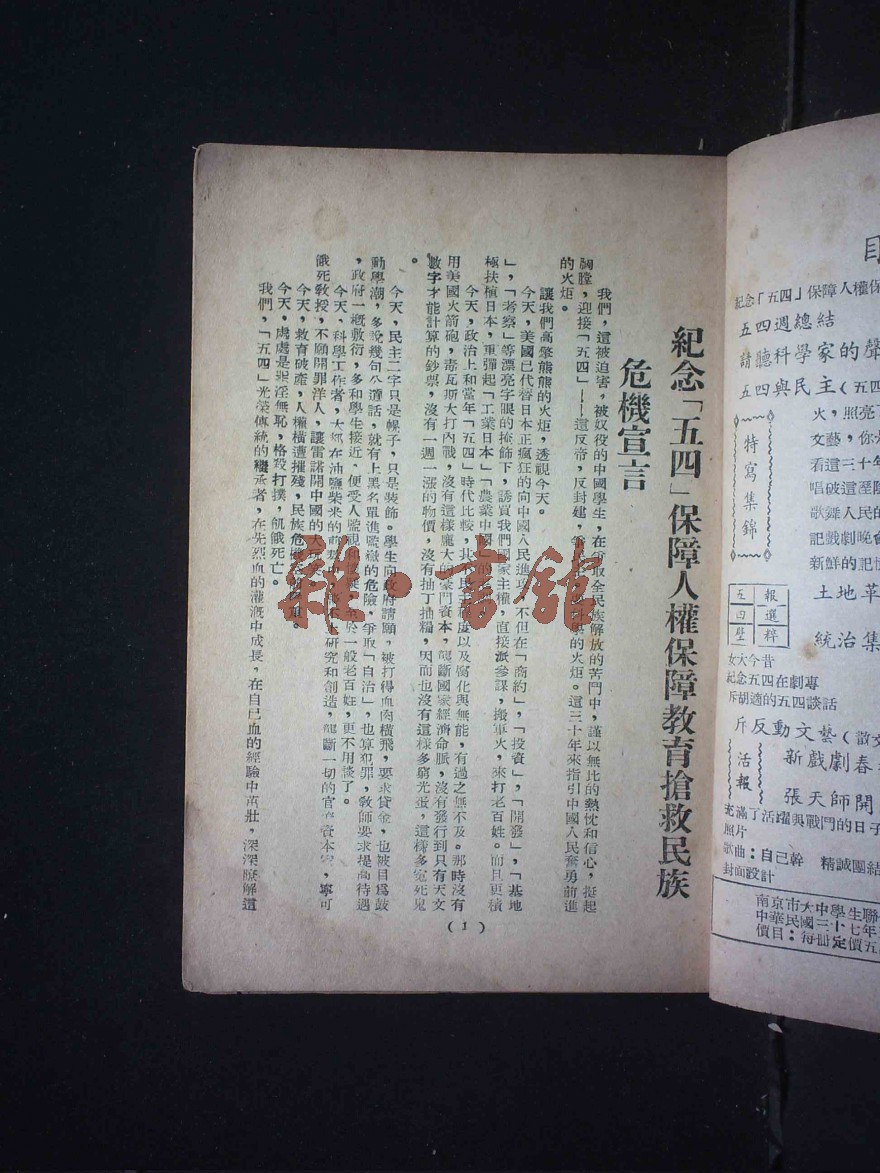 紀念「五四」保障人權保障教育搶救民族
危機宣言
我們，這被迫害，被奴役的中國學生，在爭取全民族解放的苦鬥中，謹以無比的熱忱和信心，挺起
胸膛，迎接「五四」——這反帝，反封建，爭民主，爭科學的火炬。這三十年來指引中國人民奮勇前進
的火炬。
讓我們高擎熊熊的火炬，透視今天。
今天，美國已代替日本正瘋狂的向中國人民進攻，不但在「商約」，「投資」，「開發」，「基地
」，「考察」等漂亮字眼的掩飾下，誘買我們國家主權，直接派參謀，搬軍火，來打老百姓。而且更積
極扶植日本，重彈起「工業日本」「農業中國」的
今天，政治上和當年「五四」時代比較，其不民主程度以及腐化與無能，有過之無不及。那時沒有
用美國火箭砲，毒瓦斯大打內戰，沒有這樣龐大的豪門資本，壟斷國家經濟命脈，沒有發行到只有天文
數字才能計算的鈔票，沒有一週一漲的物價，沒有抽丁抽糧，因而也沒有這樣多窮光蛋，這樣多冤死鬼
。
今天，民主二字只是幌子，只是裝飾。學生向政府請願，被打得血肉橫飛，要求貸金，也被目爲鼓
動學潮，多說幾句公道話，就有上黑名單進監獄的危險，爭取「自治」，也算犯罪，教師要求提高待遇
，政府一概敷衍，多和學生接近，便受人監視 至於一般老百姓，更不用談了。
今天，科學工作者，大都在油鹽柴米的 研究和創造，壟斷一切的官僚資本家，寧可
餓死教授，不願開罪洋人，讓雷諾開中國的大玩笑
今天，教育破產，人權橫遭摧殘，民族危機
今天，處處是罪淫無恥，格殺打撲，飢餓死亡。
我們，「五四」光榮傳統的繼承者，在先烈血的灌漑中成長，在自己血的經驗中茁壯，深深瞭解這
(1)
雜·書館
紀念「五四」保障人權保
五四週總結
請聽科學家的聲
五四與民主（五四
特寫集錦
火，照亮了
文藝，你
看這三十年
唱破這至
歌舞人民的
記戲劇晚會
新鮮的記憶
土地革
五四壁報選粹
統治集
女大今昔
紀念五四在劇專
斥胡適的五四談話
斥反動文藝（散文
活報
新戲劇春
張天師開
充滿了活躍與戰鬥的日子
照片
歌曲：自己幹 精誠團結
封面設計
南京市大中學生聯
中華民國三十七年
價目：每冊定價五